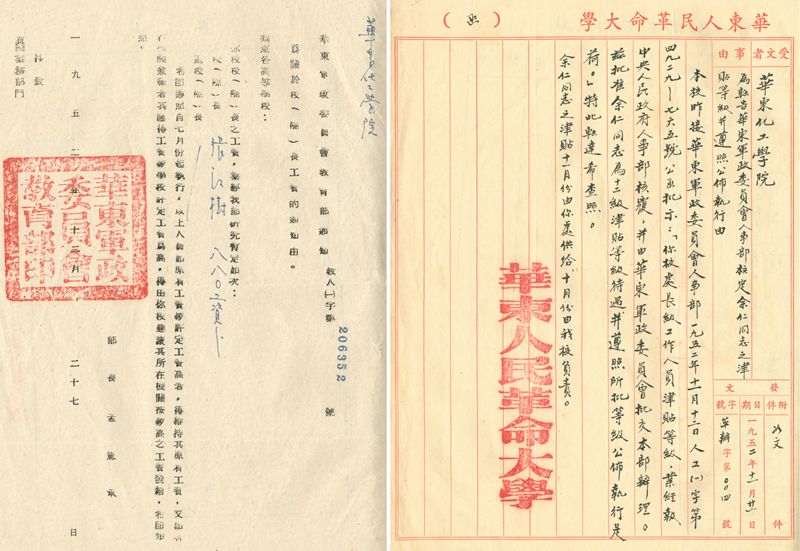 華東人民革命大學（函）
受文者
華東化工學院
事由
為轉告華東軍政委員會人事部核定余仁同志之津
貼等級并遵照公佈執行由
發文
附件
如文
件
日期
一九五二年十一月廿一
字號
革辦字第00四號
本校昨接華東軍政委員會人事部一九五二年十一月十二日人工(一)字第
四九二九—七六五號公函批示：「你校處長級工作人員津貼等級，業經報
中央人民政府人事部核覆，并由華東軍政委員會批交本部辦理。
茲批准余仁同志為十二級津貼等級待遇并遵照所批等級公佈執行是
荷。」特此轉達希查照。
余仁同志之津貼十一月份由你處供給，十月份由我校負責。
華東人民革命大學
華東化工學院
華東軍政委員會教育部通知
教人(一)字第
206352
號
為關於校（院）長工資的通知由。
華東各高等學校：
校（院）長之工資，業經我部研究暫定如次：
校（院）長
張江樹 八八〇工資分
副校（院）長
希即遵照自七月份起執行，以上人員如原有工資
部長 孟憲承
抄致
有關業務部門
一九五二年十二月二十七日
華東軍政委員會教育部印